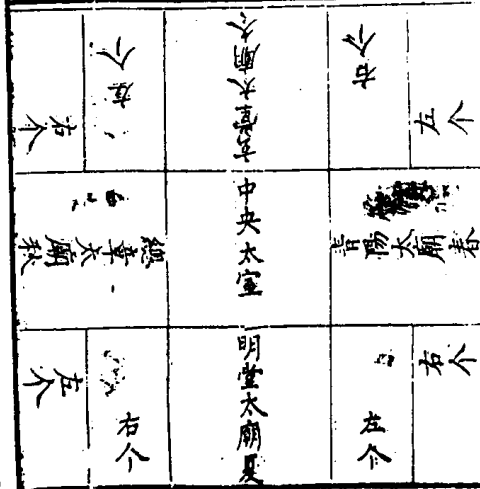 右个
左个
玄堂太廟冬
右个
左个
總章太廟秋
中央太室
青陽太廟春
左个
右个
明堂太廟夏
左个
右个